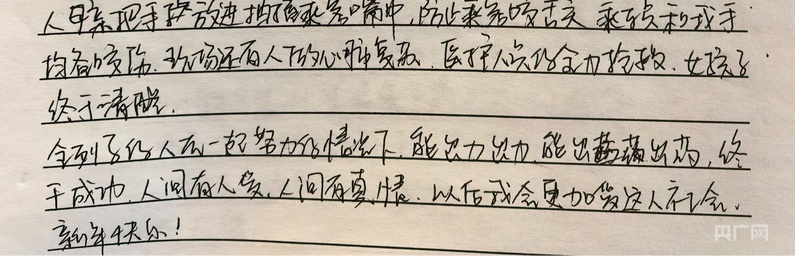 把手放进抽搐乘客嘴中,防止乘客咬舌头 乘务员和我手
均咬伤.现场还有人做心肺复苏.医护人员全力抢救.女孩子
终于清醒.
全列车的人在一起努力的情况下,能出力出力,能出药出药,终
于成功,人间有爱,人间有真情.以后我会更加爱这个社会.
新年快乐!
央广网